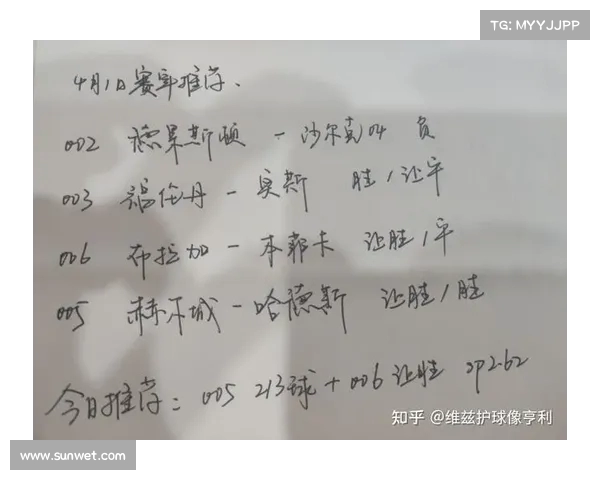 TG: MYYJJPP
4月1日赛事推荐、
002 德累斯顿 - 沙尔克04 负
003 福伦丹 - 奥斯 胜/让平
006 布拉加 - 本菲卡 让胜/平
005 赫尔城 - 哈德斯 让胜/胜
今日推荐: 005 2/3球+006让胜 2p2.62
知乎 @维兹护球像亨利
www.sunwet.com